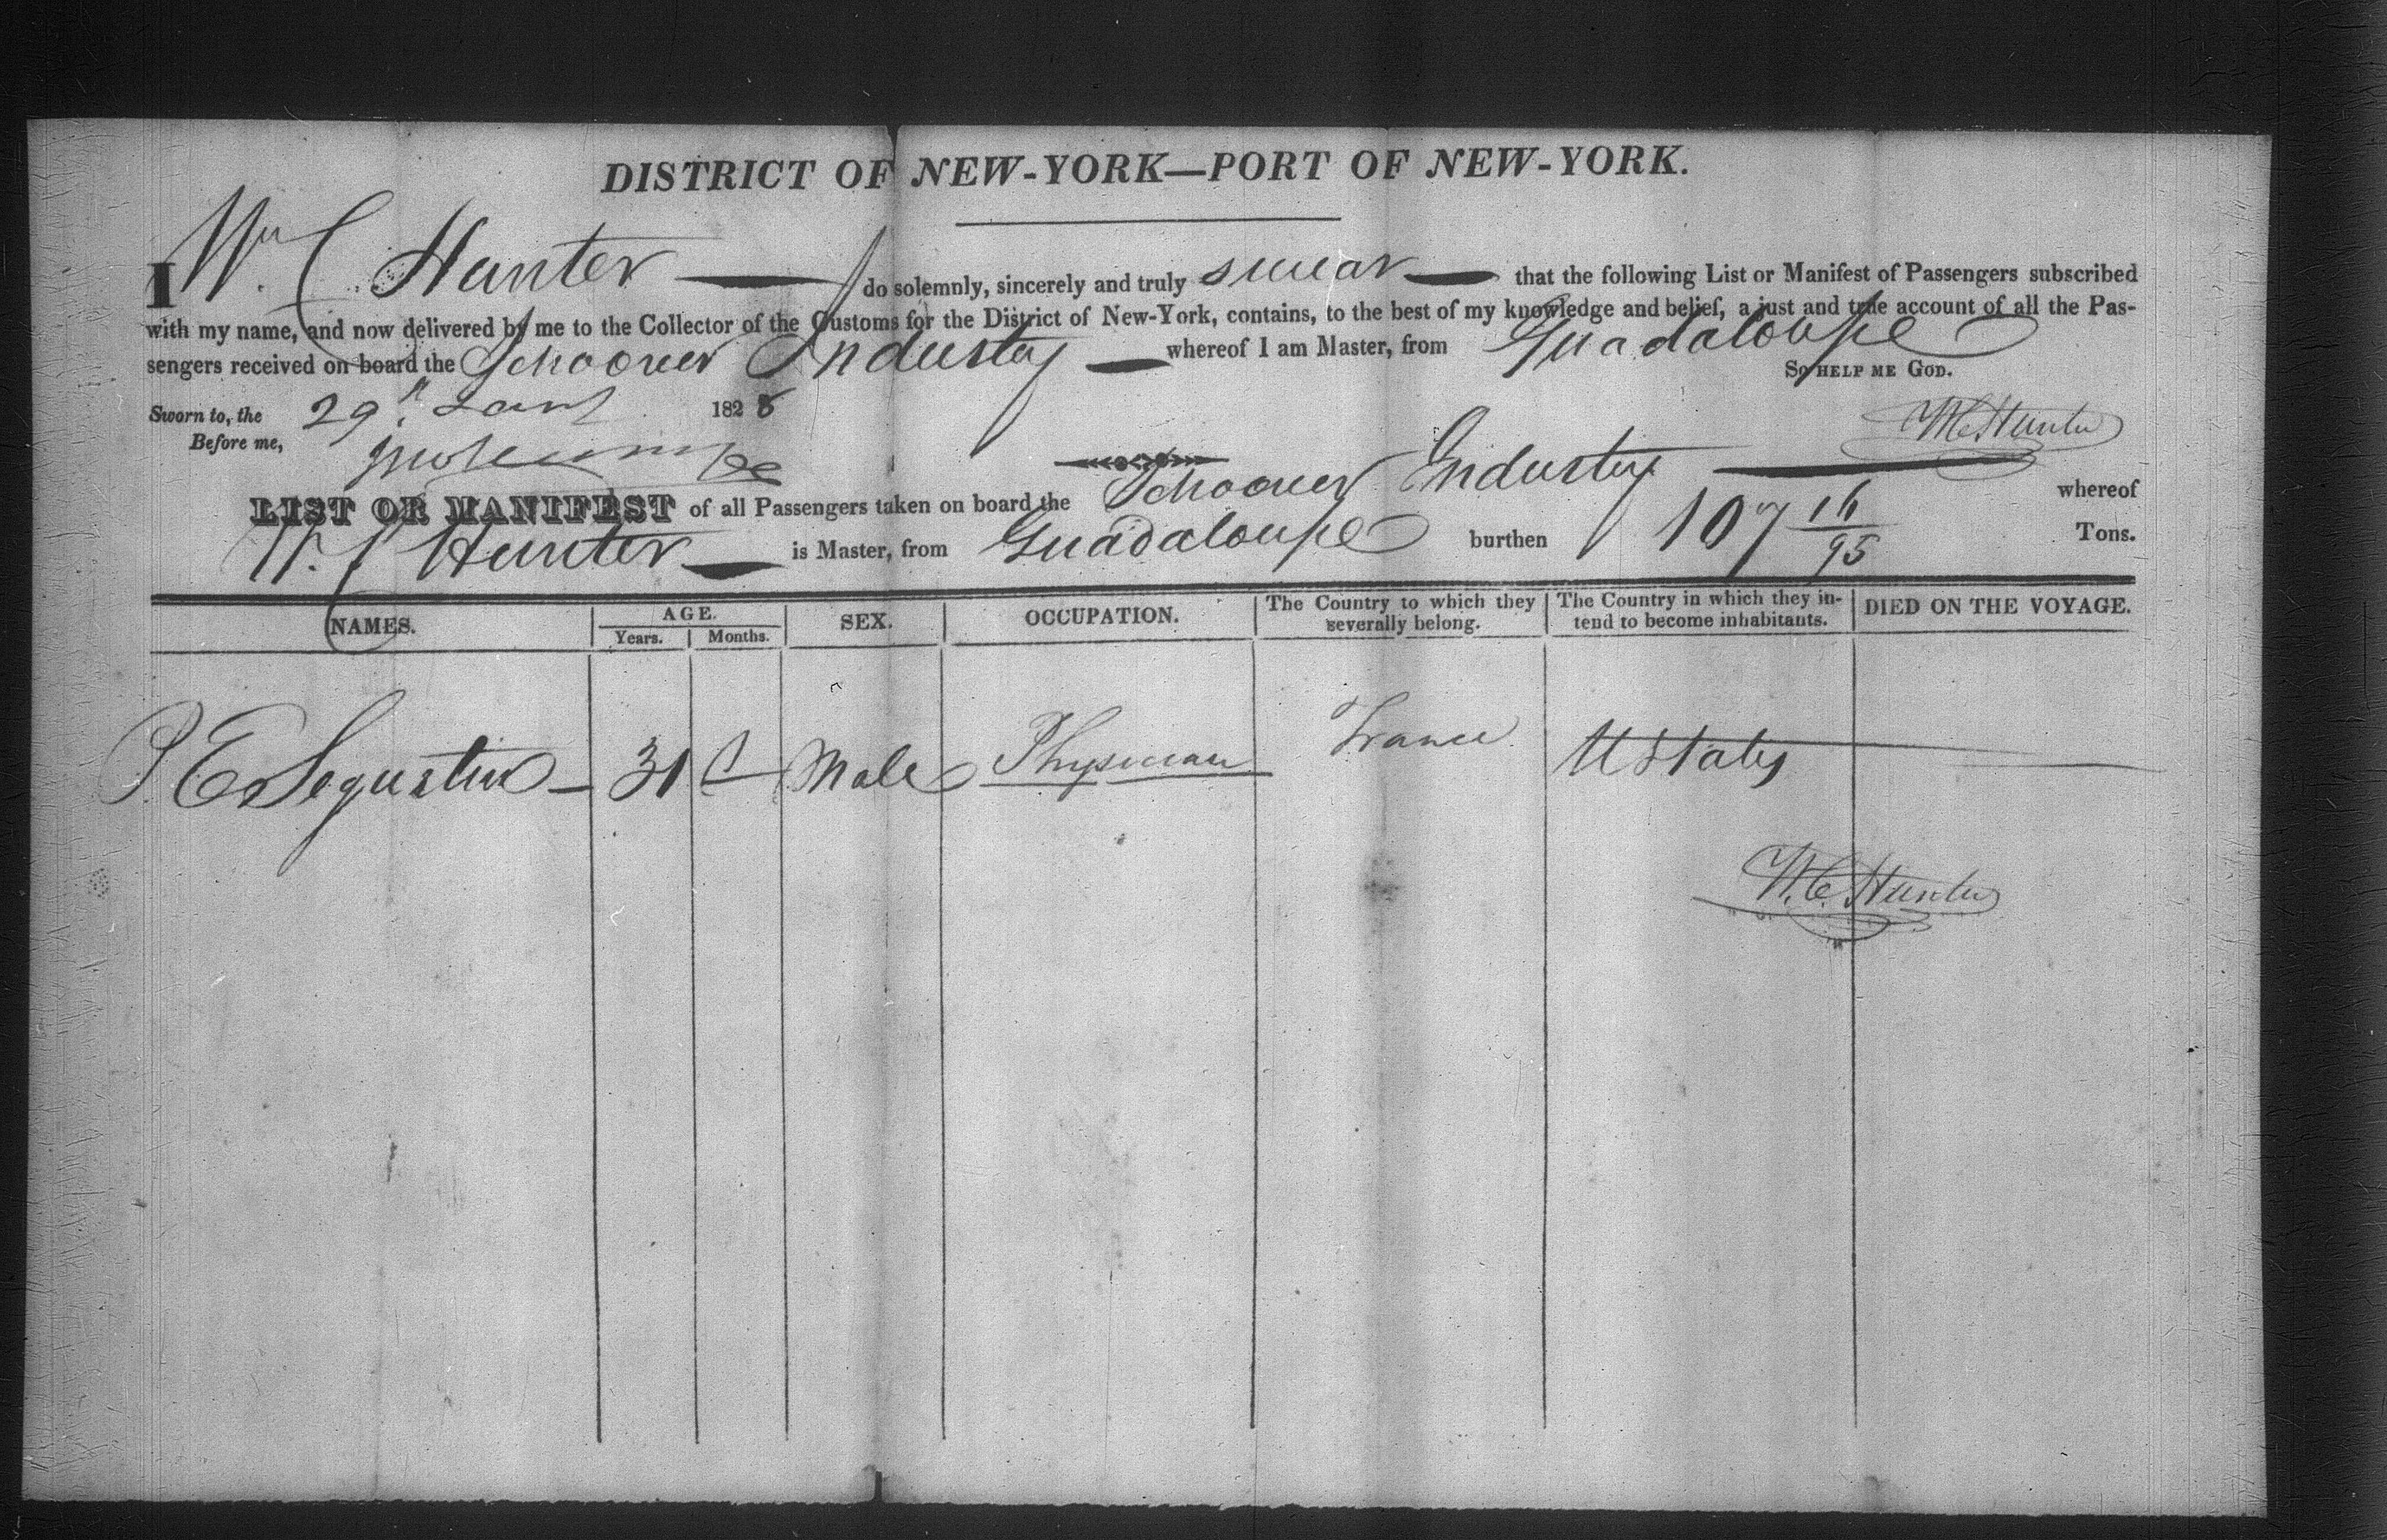 DISTRICT OF NEW-YORK—PORT OF NEW-YORK.
I Wm C Hunter do solemnly, sincerely and truly swear that the following List or Manifest of Passengers subscribed
with my name, and now delivered by me to the Collector of the Customs for the District of New-York, contains, to the best of my knowledge and belief, a just and true account of all the Pas-
sengers received on board the Schooner Industry whereof I am Master, from Guadaloupe
So HELP ME GOD.
Sworn to, the 29th Jany 1828
Before me,
W C Hunter
LIST OR MANIFEST of all Passengers taken on board the Schooner Industry whereof
W. C Hunter is Master, from Guadaloupe burthen 107 16/95 Tons.
NAMES. AGE. Years. Months. SEX. OCCUPATION. The Country to which they severally belong. The Country in which they in-tend to become inhabitants. DIED ON THE VOYAGE.
P. E Segustin 31 Male Physician France U States
W. C. Hunter